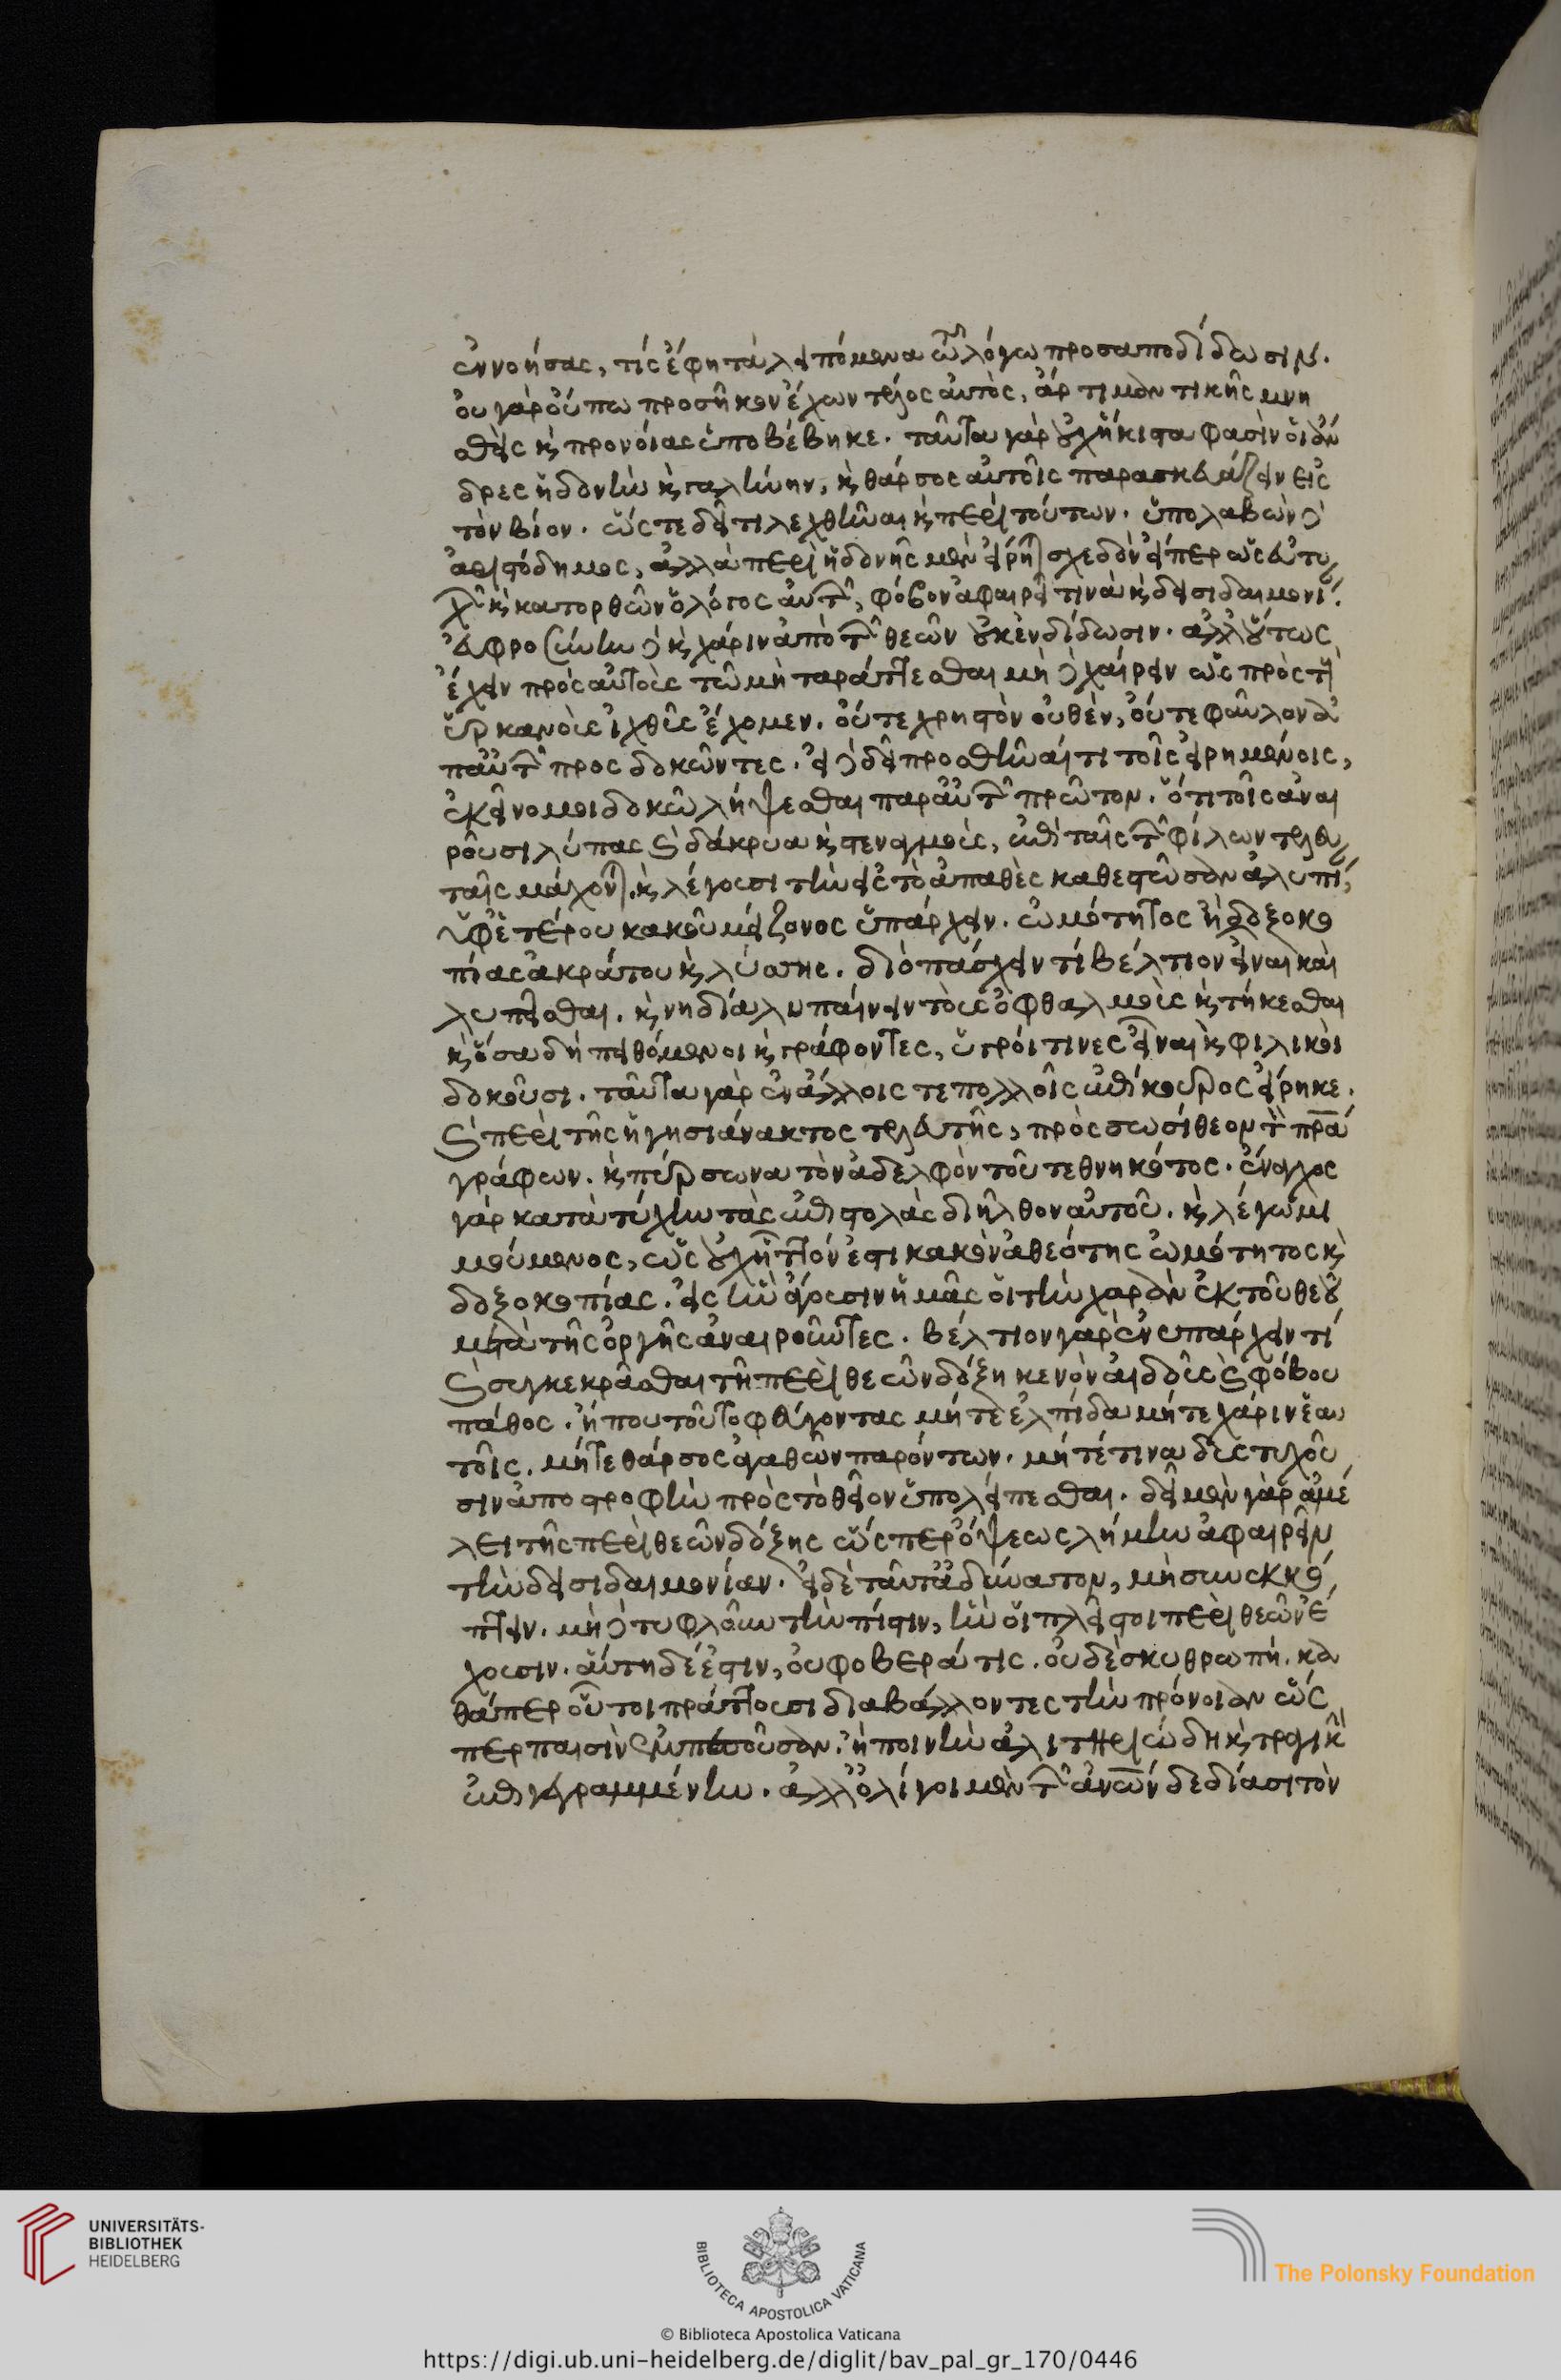 ἐννοήσας, τίς ἔφη τὰ λειπόμενα τῶ λόγω προσαποδίδωσιν.
οὐ γὰρ οὔπω προσῆκον ἔχων τέλος αὐτὸς, ἄρτι μαντικῆς μνη
σθεὶς καὶ προνοίας ὑποβέβηκε. ταῦτα γὰρ οὐχήκιστα φασὶν οἱ ἄν
δρες ἡδονὴν καὶ γαλήνην, καὶ θάρσος αὐτοῖς παρασκευάζειν εἰς
τὸν βίον. ὥςτε δεῖ τι λεχθῆναι καὶ περὶ τούτων. ὑπολαβὼν δὲ
ἀριστόδημος, ἀλλὰ περὶ ἡδονῆς μὲν εἴρηται σχεδὸν εἴπερ ὡς εὐτυ
χῶν καὶ κατορθῶν ὁ λόγος αὐτῶν, φόβον ἀφαιρεῖ τινὰ καὶ δεισιδαιμονίαν.
εὐφροσύνην δὲ καὶ χάριν ἀπὸ τῶν θεῶν οὐκ ἐνδίδωσιν. ἀλλ' οὕτως
ἔχειν πρὸς αὐτοὺς τῶ μὴ ταράττεσθαι μὴ δὲ χαίρειν ὡς πρὸς τοὺς
ὑρκανοὺς ἰχθῦς ἔχομεν. οὔτε χρηστὸν οὐθὲν, οὔτε φαῦλον ἀ
παὐτῶν προςδοκῶντες. εἰ δὲ δεῖ προσθῆναί τι τοῖς εἰρημένοις,
ἐκεῖνο μοι δοκῶ λήψεσθαι παραὐτῶν πρῶτον. ὅτι τοῖς ἀναι
ροῦσι λύπας καὶ δάκρυα καὶ στεναγμοὺς, ἐπὶ ταῖς τῶν φίλων τελευ
ταῖς μάχονται, καὶ λέγουσι τὴν εἰς τὸ ἀπαθὲς καθεστῶσαν ἀλυπίαν,
ὑφ' ἑτέρου κακοῦ μείζονος ὑπάρχειν. ὠμότητος ἢ δοξοκο
πίας ἀκράτου καὶ λύσσης. διὸ πάσχειν τί βέλτιον εἶναι καὶ
λυπεῖσθαι. καὶ νὴ δία λυπαίνειν τοὺς ὀφθαλμοὺς καὶ τήκεσθαι
καὶ ὅσα δὴ πειθόμενοι καὶ γράφοντες, ὑγροί τινες εἶναι καὶ φιλικοὶ
δοκοῦσι. ταῦτα γὰρ ἐν ἄλλοις τε πολλοῖς ἐπίκουρος εἴρηκε.
καὶ περὶ τῆς ἡγησιάνακτος τελευτῆς, πρὸς σωσίθεον τὸν πρα
γράφων. καὶ πύρσωνα τὸν ἀδελφὸν τοῦ τεθνηκότος. ἔναγχος
γὰρ κατὰ τύχην τὰς ἐπιστολὰς διῆλθον αὐτοῦ. καὶ λέγω μι
μούμενος, ὡς οὐχ ἧττόν ἐστι κακὸν ἀθεότης ὠμότητος καὶ
δοξοκοπίας. εἰς ἣν ἄγουσιν ἡμᾶς οἱ τὴν χαρὰν ἐκ τοῦ θεοῦ
μετὰ τῆς ὀργῆς ἀναιροῦντες. βέλτιον γὰρ ἐνυπάρχειν τί
καὶ συγκεκρᾶσθαι τῆ περὶ θεῶν δόξη κενὸν αἰδοῦς καὶ φόβου
πάθος. ἤ που τοῦτο φεύγοντας μήτε ἐλπίδα μήτε χάριν ἑαυ
τοῖς. μήτε θάρσος ἀγαθῶν παρόντων. μήτέ τινα δυστυχοῦ
σιν ἀποστροφὴν πρὸς τὸ θεῖον ὑπολείπεσθαι. δεῖ μὲν γὰρ ἀμέ
λει τῆς περὶ θεῶν δόξης ὥςπερ ὄψεως λήμην ἀφαιρεῖν
τὴν δεισιδαιμονίαν. εἰ δὲ τοῦτ' ἀδύνατον, μὴ συνεκκό
πτειν. μὴ δὲ τυφλοῦν τὴν πίστιν, ἣν οἱ πλεῖστοι περὶ θεῶν ἔ
χουσιν. αὕτη δέ ἐστιν, οὐ φοβερά τις. οὐδὲ σκυθρωπή. κα
θάπερ οὗτοι πράττουσι διαβάλλοντες τὴν πρόνοιαν ὥς
περ παισὶν ἔμπουσαν. ἢ ποινὴν ἀλιτηριώδη καὶ τραγικὴν
ἐπιγεγραμμένην. ἀλλ' ὀλίγοι μὲν τῶν ἀνων δεδίασι τὸν
UNIVERSITÄTS-
BIBLIOTHEK
HEIDELBERG
BIBLIOTECA APOSTOLICA VATICANA
The Polonsky Foundation
© Biblioteca Apostolica Vaticana
https://digi.ub.uni-heidelberg.de/diglit/bav_pal_gr_170/0446